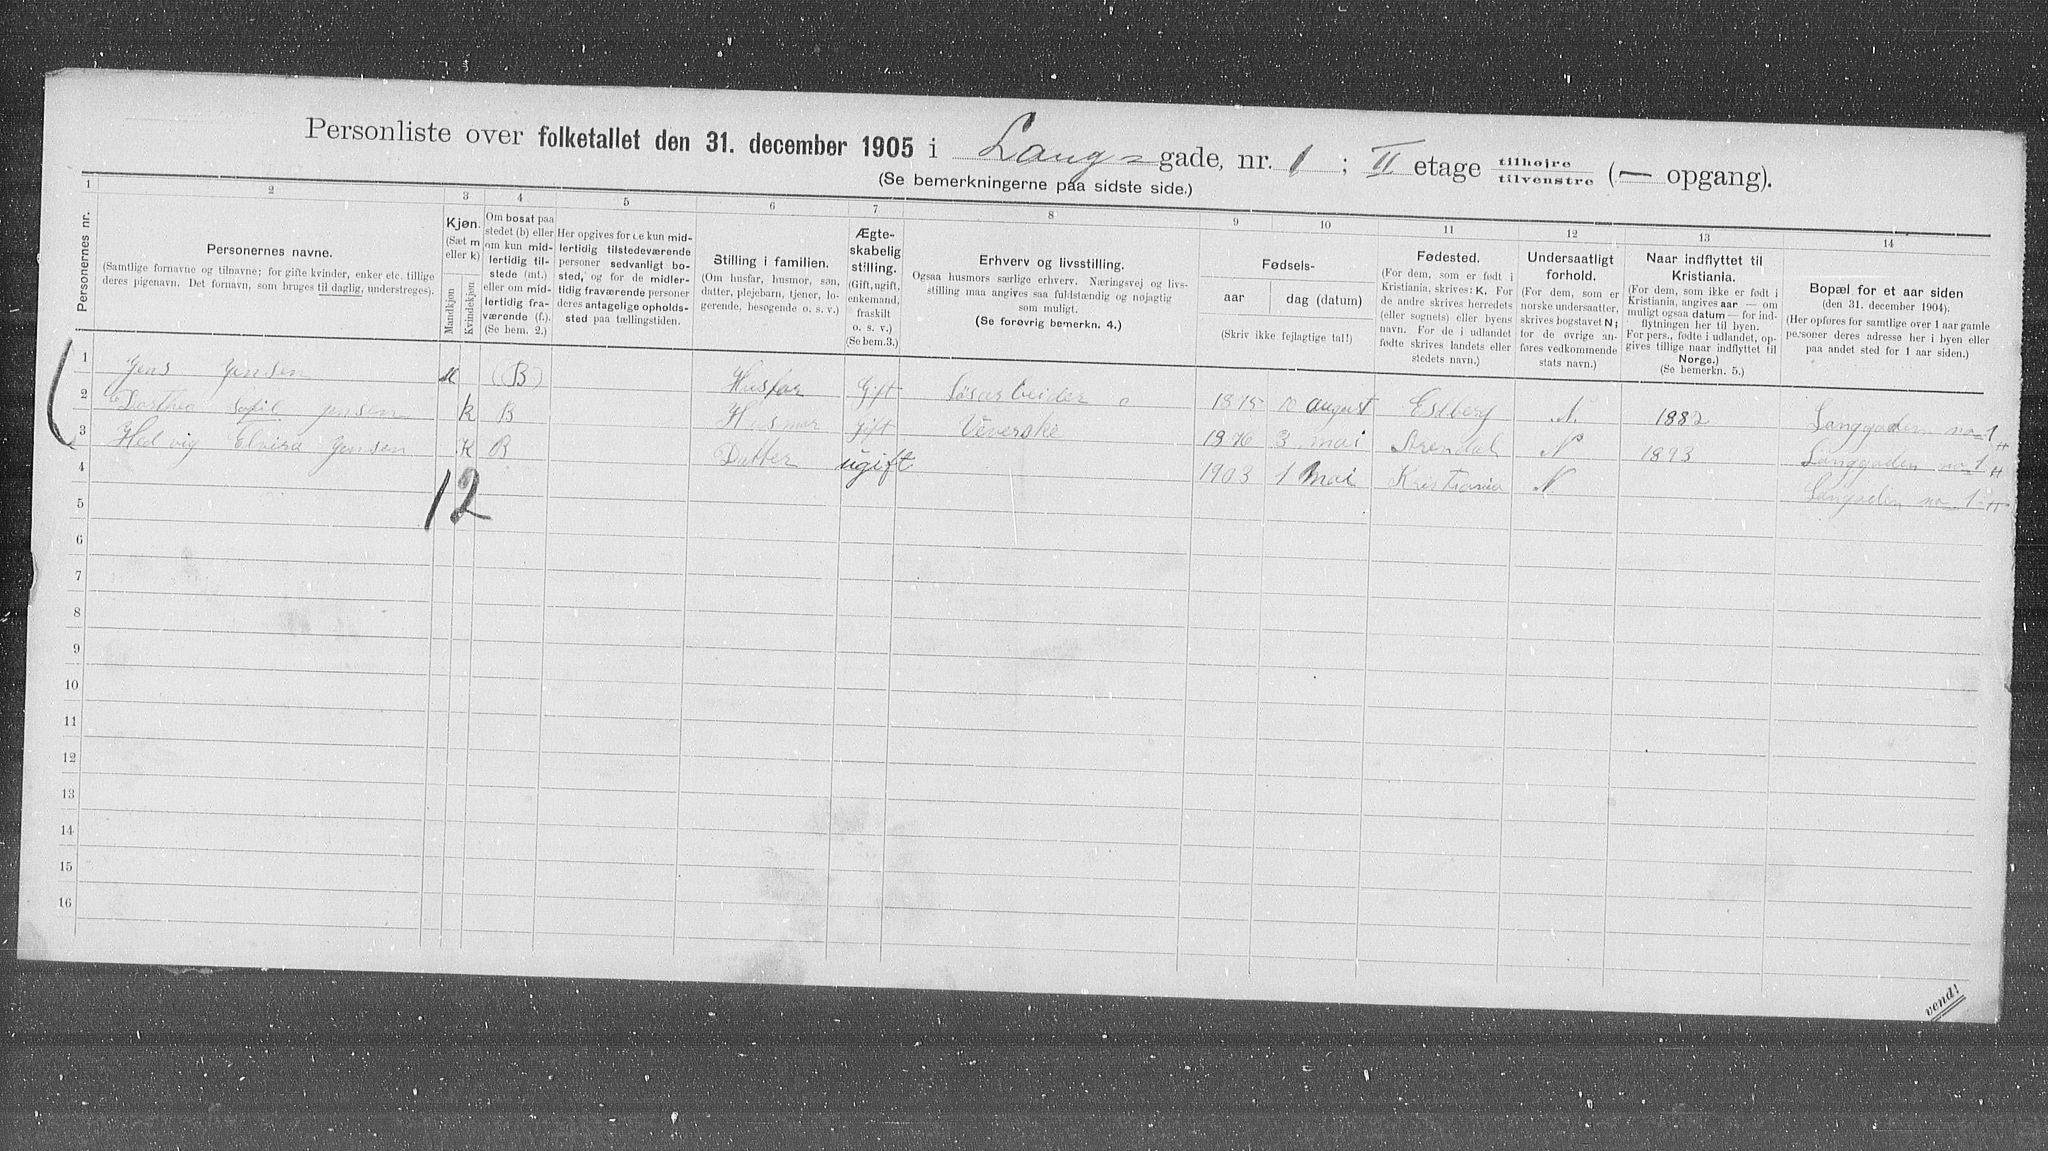 Personliste over folketallet den 31. december 1905 i Lang= gade, nr. 1 ; II etage tilhøjre tilvenstre (— opgang).
(Se bemerkningerne paa sidste side.)
1 2 3 4 5 6 7 8 9 10 11 12 13 14
Personernes nr.
Personernes navne.
(Samtlige fornavne og tilnavne; for gifte kvinder, enker etc. tillige
deres pigenavn. Det fornavn, som bruges til daglig, understreges).
Kjøn.
(Sæt m
eller k)
Mandkjøn
Kvindekjøn
Om bosat paa
stedet (b) eller
om kun mid-
lertidig til-
stede (mt.)
eller om mid-
lertidig fra-
værende (f.).
(Se bem. 2.)
Her opgives for de kun mid-
lertidig tilstedeværende
personer sedvanligt bo-
sted, og for de midler-
tidig fraværende personer
deres antagelige opholds-
sted paa tællingstiden.
Stilling i familien.
(Om husfar, husmor, søn,
datter, plejebarn, tjener, lo-
gerende, besøgende o. s. v.)
Ægte-
skabelig
stilling.
(Gift, ugift,
enkemand,
fraskilt
o. s. v.)
(Se bem.3.)
Erhverv og livsstilling.
Ogsaa husmors særlige erhverv. Næringsvej og livs-
stilling maa angives saa fuldstændig og nøjagtig
som muligt.
(Se forøvrig bemerkn. 4.)
Fødsels-
aar
dag (datum)
(Skriv ikke fejlagtige tal!)
Fødested.
(For dem, som er født i
Kristiania, skrives: K. For
de andre skrives herredets
(eller sognets) eller byens
navn. For de i udlandet
fødte skrives landets eller
stedets navn.)
Undersaatligt
forhold.
(For dem, som er
norske undersaatter,
skrives bogstavet N;
for de øvrige an-
føres vedkommende
stats navn.)
Naar indflyttet til
Kristiania.
(For dem, som ikke er født i
Kristiania, angives aar — om
muligt ogsaa datum — for ind-
flytningen her til byen.
For pers., fødte i udlandet, op-
gives tillige naar indflyttet til
Norge.)
(Se bemerkn. 5.)
Bopæl for et aar siden
(den 31. december 1904).
(Her opføres for samtlige over 1 aar gamle
personer deres adresse her i byen eller
paa andet sted for 1 aar siden.)
1 Jens Jensen M (B) Husfar Gift Løsarbeider 1875 10 august Estberg N. 1882 Langgaden no 1 H
2 Dorthea Sofie Jensen k B Husmor Gift Veverske 1876 3 mai Arendal N 1893 Langgaden no 1 H
3 Hedvig Elvira Jensen K B Datter ugift 1903 1 Mai Kristiania N Langaden no 1 H
4
12
5
6
7
8
9
10
11
12
13
14
15
16
vend!